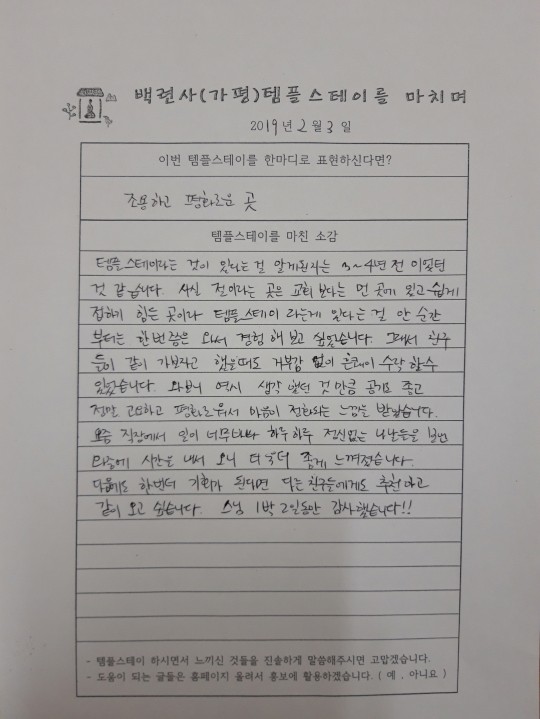 백련사(가평)템플스테이를 마치며
2019년 2월 3일
이번 템플스테이를 한마디로 표현하신다면?
조용하고 평화로운 곳
템플스테이를 마친 소감
템플스테이라는 것이 있다는 걸 알게된지는 3~4년 전 이였던
것 같습니다. 사실 절이라는 곳은 교회 보다는 먼 곳에 있고 쉽게
접하기 힘든 곳이라 템플스테이 라는게 있다는 걸 안 순간
부터는 한번쯤은 와서 경험 해 보고 싶었습니다. 그래서 친구
들이 같이 가보자고 했을때도 거부감 없이 흔쾌이 수락 할수
있었습니다. 와보니 역시 생각 했던 것 만큼 공기도 좋고
정말 고요하고 평화로워서 마음이 정화되는 느낌을 받았습니다.
요즘 직장에서 일이 너무바빠 하루하루 정신없는 나날들을 보낸
와중에 시간을 내서 오니 더욱더 좋게 느껴졌습니다.
다음에도 한번더 기회가 된다면 다른친구들에게도 추천하고
같이 오고 싶습니다. 스님 1박 2일동안 감사했습니다!!
- 템플스테이 하시면서 느끼신 것들을 진솔하게 말씀해주시면 고맙겠습니다.
- 도움이 되는 글들은 홈페이지 올려서 홍보에 활용하겠습니다. ( 예 , 아니요 )